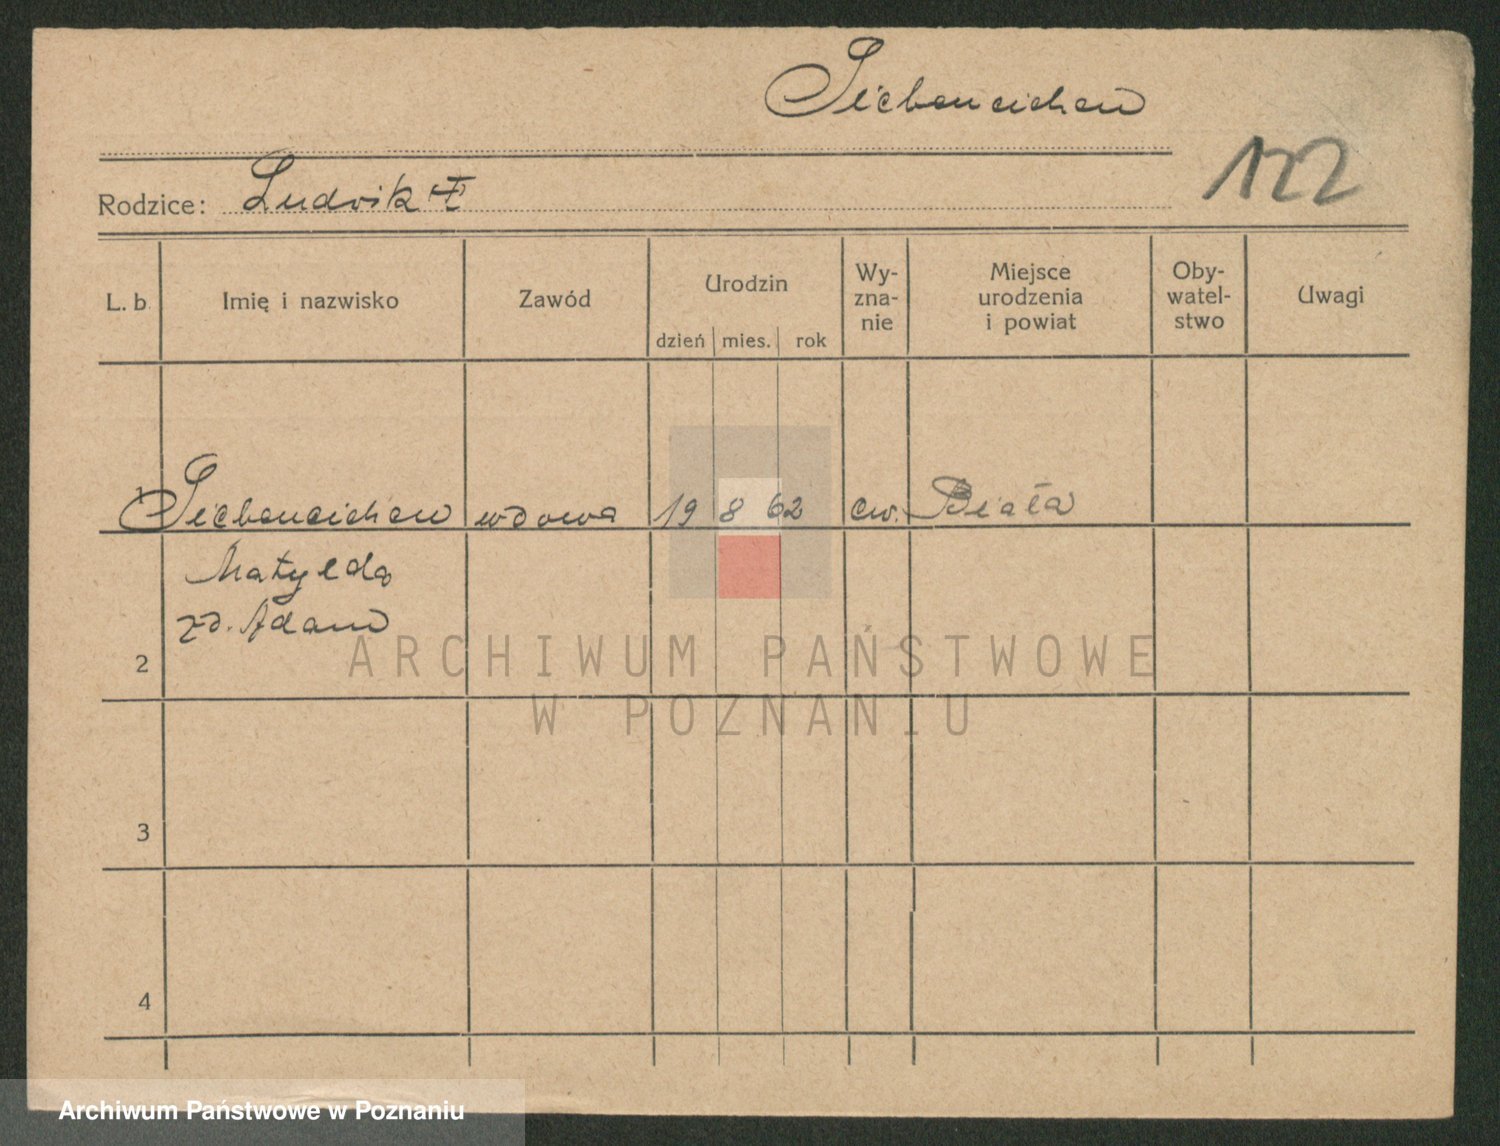 Siebeneichen
122
Rodzice: Ludwik I
L. b. Imię i nazwisko Zawód Urodzin dzień mies. rok Wy-zna-nie Miejsce urodzenia i powiat Oby-watel-stwo Uwagi
1 Siebeneichen wdowa 19 8 62 ew. Biała
Matylda
zd. Adam
2
ARCHIWUM PAŃSTWOWE
W POZNANIU
3
4
Archiwum Państwowe w Poznaniu